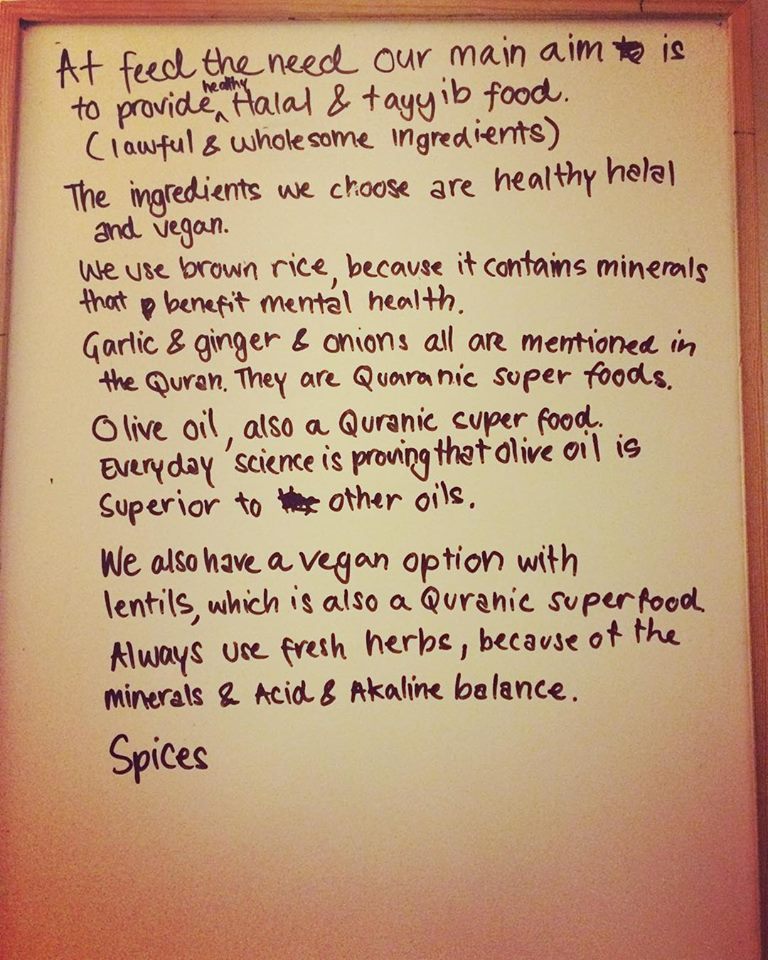 At feed the need our main aim is
to provide healthy Halal & tayyib food.
(lawful & wholesome ingredients)
The ingredients we choose are healthy halal
and vegan.
We use brown rice, because it contains minerals
that benefit mental health.
Garlic & ginger & onions all are mentioned in
the Quran. They are Quaranic super foods.
Olive oil, also a Quranic super food.
Everyday science is proving that olive oil is
superior to other oils.
We also have a vegan option with
lentils, which is also a Quranic superfood.
Always use fresh herbs, because of the
minerals & Acid & Akaline balance.
Spices